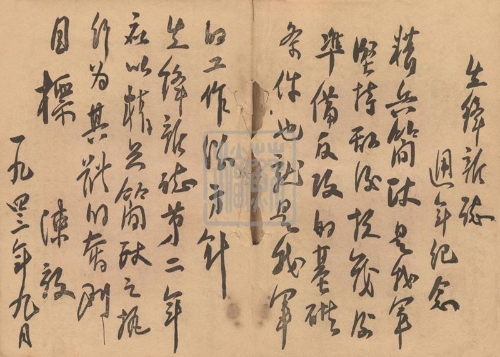 先鋒雜誌
週年紀念
精兵簡政是我軍
堅持敵後抗戰
準備反攻的基礎
條件也就是我軍
的工作方針
先鋒雜誌第二年
應以精兵簡政之執
行为其的奮鬥
目標
陳毅
一九四三年九月